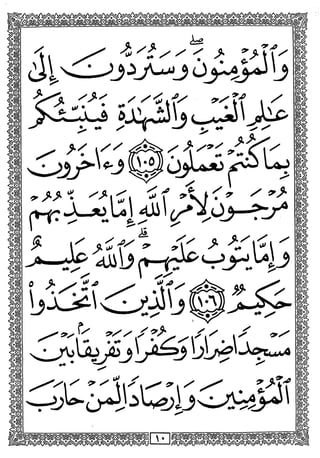 وَالْمُؤْمِنُونَ ۖ وَسَتُرَدُّونَ إِلَىٰ
عَالِمِ الْغَيْبِ وَالشَّهَادَةِ فَيُنَبِّئُكُم
بِمَا كُنتُمْ تَعْمَلُونَ ١٠٥ وَءَاخَرُونَ
مُرْجَوْنَ لِأَمْرِ اللَّهِ إِمَّا يُعَذِّبُهُمْ
وَإِمَّا يَتُوبُ عَلَيْهِمْ ۗ وَاللَّهُ عَلِيمٌ
حَكِيمٌ ١٠٦ وَالَّذِينَ اتَّخَذُوا
مَسْجِدًا ضِرَارًا وَكُفْرًا وَتَفْرِيقًا بَيْنَ
الْمُؤْمِنِينَ وَإِرْصَادًا لِّمَنْ حَارَبَ
١٠